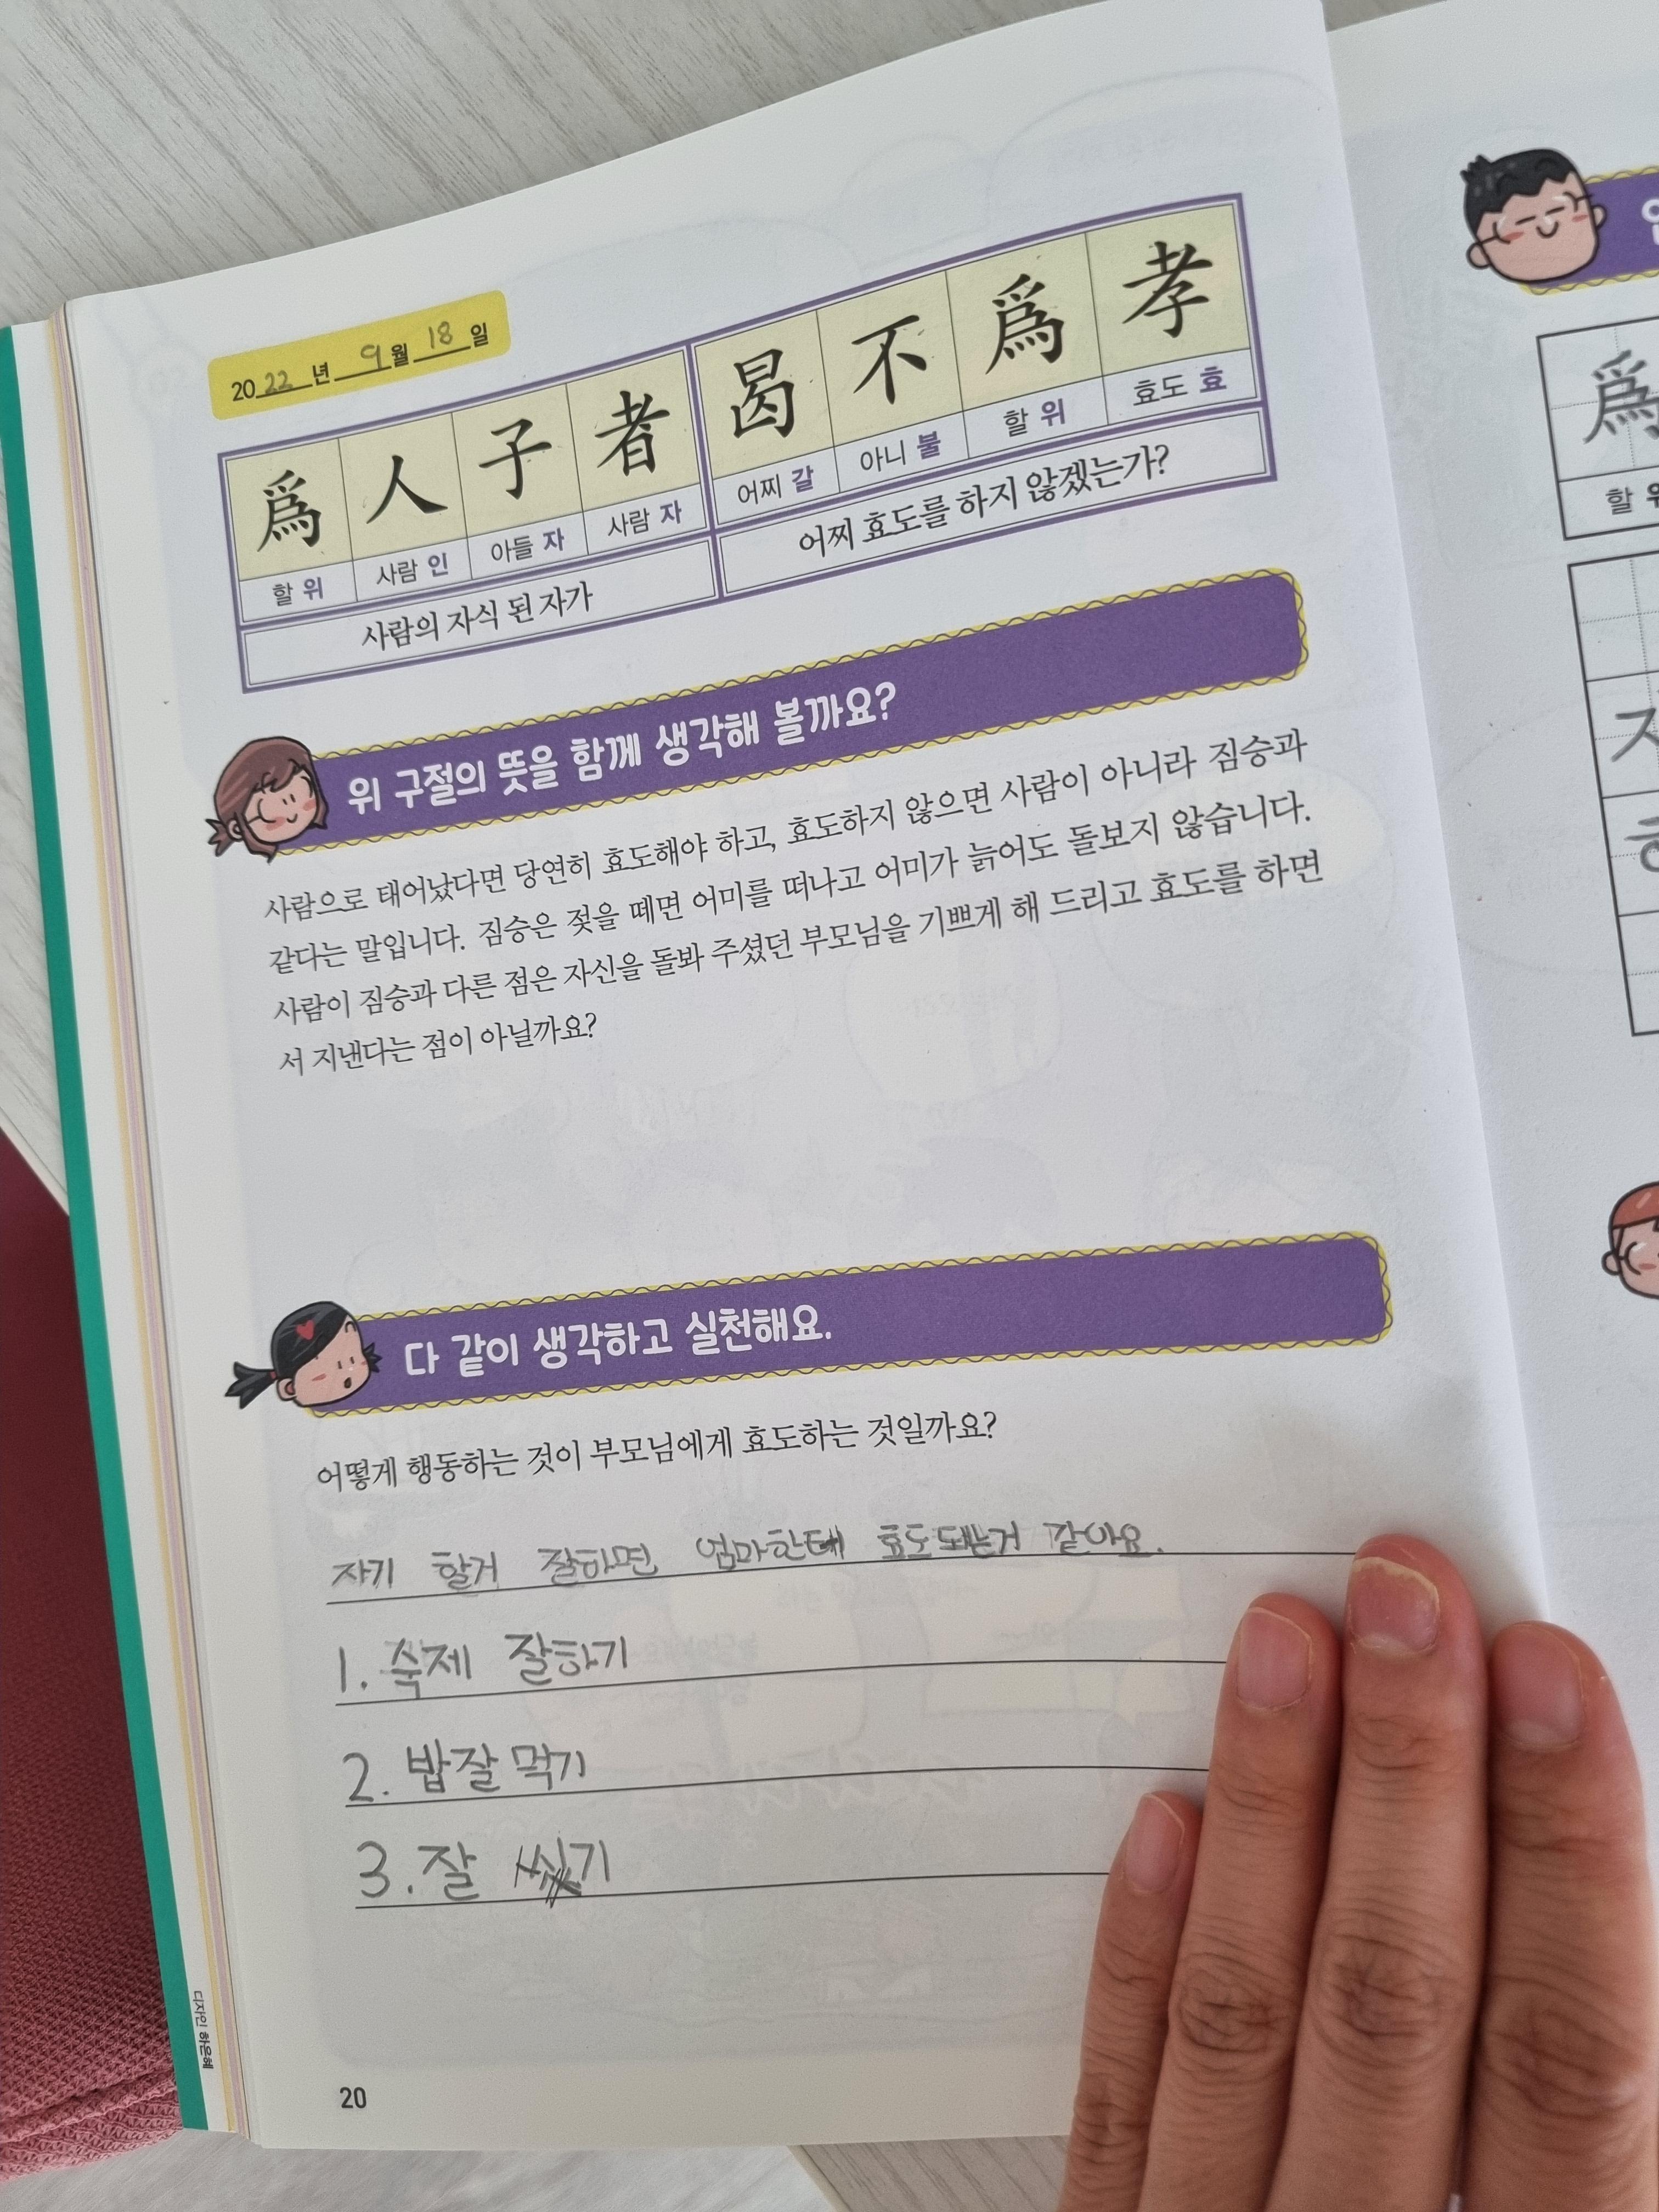 2022년 9월 18일
爲 人 子 者 曷 不 爲 孝
할 위 사람 인 아들 자 사람 자 어찌 갈 아니 불 할 위 효도 효
사람의 자식 된 자가 어찌 효도를 하지 않겠는가?
위 구절의 뜻을 함께 생각해 볼까요?
사람으로 태어났다면 당연히 효도해야 하고, 효도하지 않으면 사람이 아니라 짐승과
같다는 말입니다. 짐승은 젖을 떼면 어미를 떠나고 어미가 늙어도 돌보지 않습니다.
사람이 짐승과 다른 점은 자신을 돌봐 주셨던 부모님을 기쁘게 해 드리고 효도를 하면
서 지낸다는 점이 아닐까요?
다 같이 생각하고 실천해요.
어떻게 행동하는 것이 부모님에게 효도하는 것일까요?
자기 할거 잘하면 엄마한테 효도돼는거 같아요.
1. 숙제 잘하기
2. 밥잘먹기
3. 잘
디자인 하은혜
20
爲
할